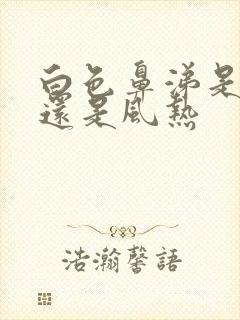 白色鼻涕是
還是風熱
浩瀚馨語